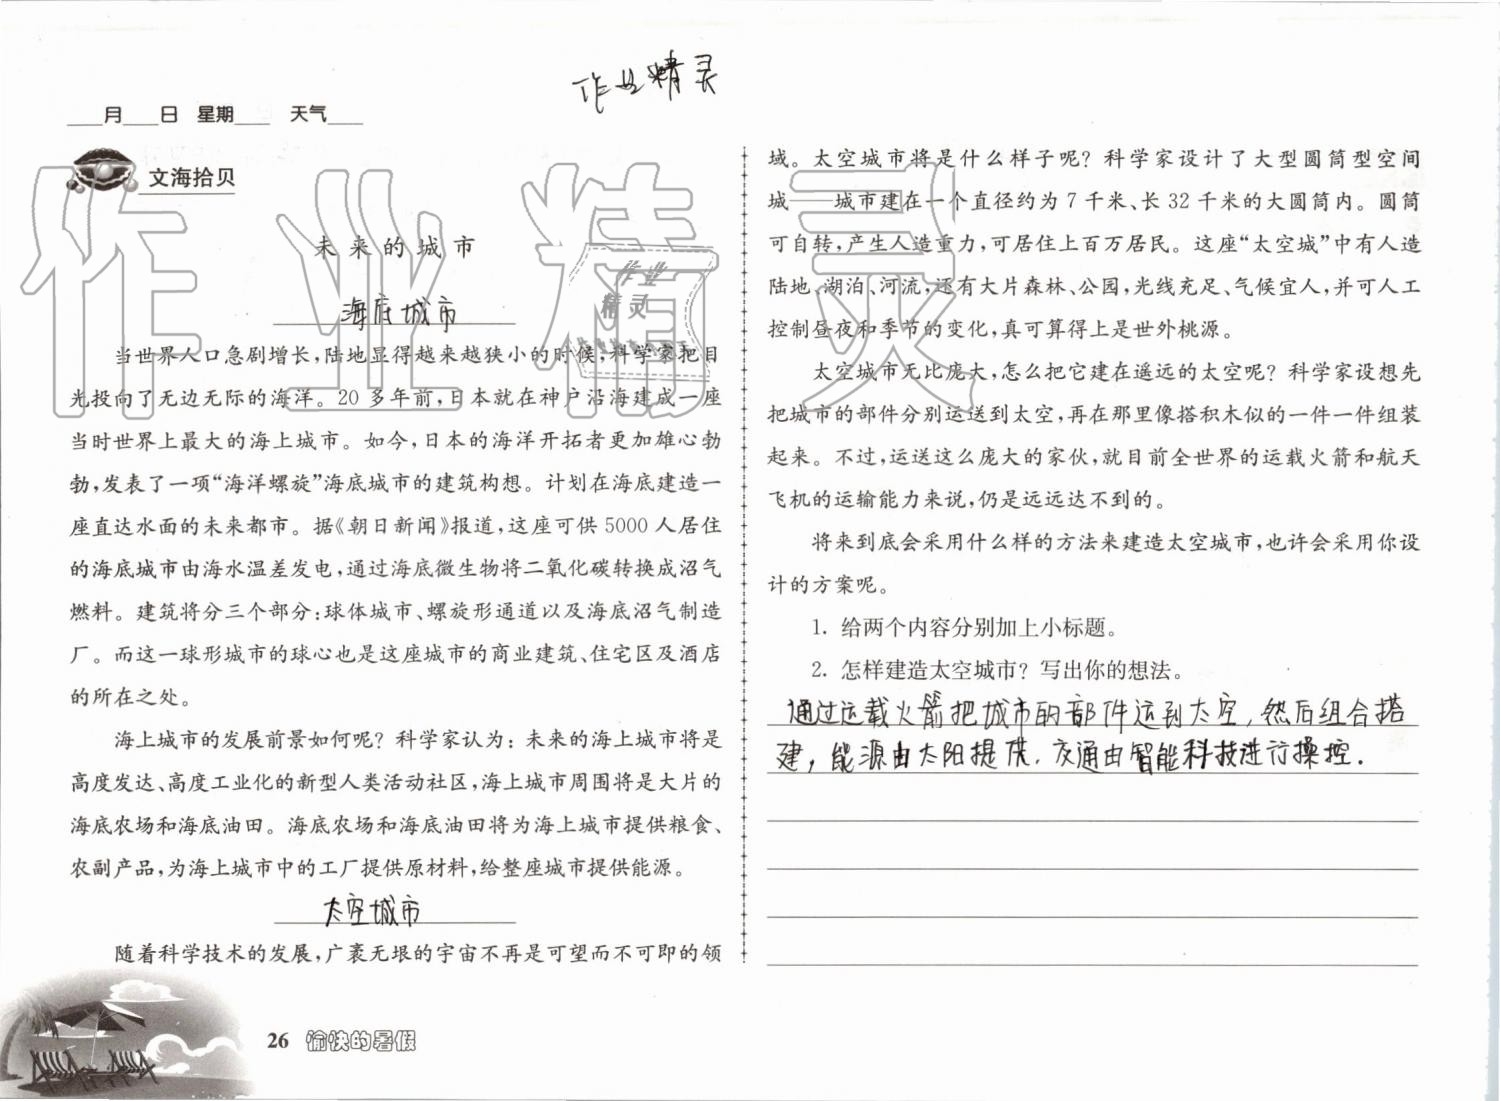 作业精灵
____月____日 星期____ 天气____
文海拾贝
未来的城市
海底城市
当世界人口急剧增长,陆地显得越来越狭小的时候,科学家把目
光投向了无边无际的海洋。20 多年前,日本就在神户沿海建成一座
当时世界上最大的海上城市。如今,日本的海洋开拓者更加雄心勃
勃,发表了一项“海洋螺旋”海底城市的建筑构想。计划在海底建造一
座直达水面的未来都市。据《朝日新闻》报道,这座可供 5000 人居住
的海底城市由海水温差发电,通过海底微生物将二氧化碳转换成沼气
燃料。建筑将分三个部分:球体城市、螺旋形通道以及海底沼气制造
厂。而这一球形城市的球心也是这座城市的商业建筑、住宅区及酒店
的所在之处。
海上城市的发展前景如何呢?科学家认为:未来的海上城市将是
高度发达、高度工业化的新型人类活动社区,海上城市周围将是大片的
海底农场和海底油田。海底农场和海底油田将为海上城市提供粮食、
农副产品,为海上城市中的工厂提供原材料,给整座城市提供能源。
太空城市
随着科学技术的发展,广袤无垠的宇宙不再是可望而不可即的领
域。太空城市将是什么样子呢?科学家设计了大型圆筒型空间
城——城市建在一个直径约为 7 千米、长 32 千米的大圆筒内。圆筒
可自转,产生人造重力,可居住上百万居民。这座“太空城”中有人造
陆地、湖泊、河流,还有大片森林、公园,光线充足、气候宜人,并可人工
控制昼夜和季节的变化,真可算得上是世外桃源。
太空城市无比庞大,怎么把它建在遥远的太空呢?科学家设想先
把城市的部件分别运送到太空,再在那里像搭积木似的一件一件组装
起来。不过,运送这么庞大的家伙,就目前全世界的运载火箭和航天
飞机的运输能力来说,仍是远远达不到的。
将来到底会采用什么样的方法来建造太空城市,也许会采用你设
计的方案呢。
1. 给两个内容分别加上小标题。
2. 怎样建造太空城市?写出你的想法。
通过运载火箭把城市的部件运到太空,然后组合搭
建,能源由太阳提供,交通由智能科技进行操控.
26 愉快的暑假
作业精灵
作业
精灵